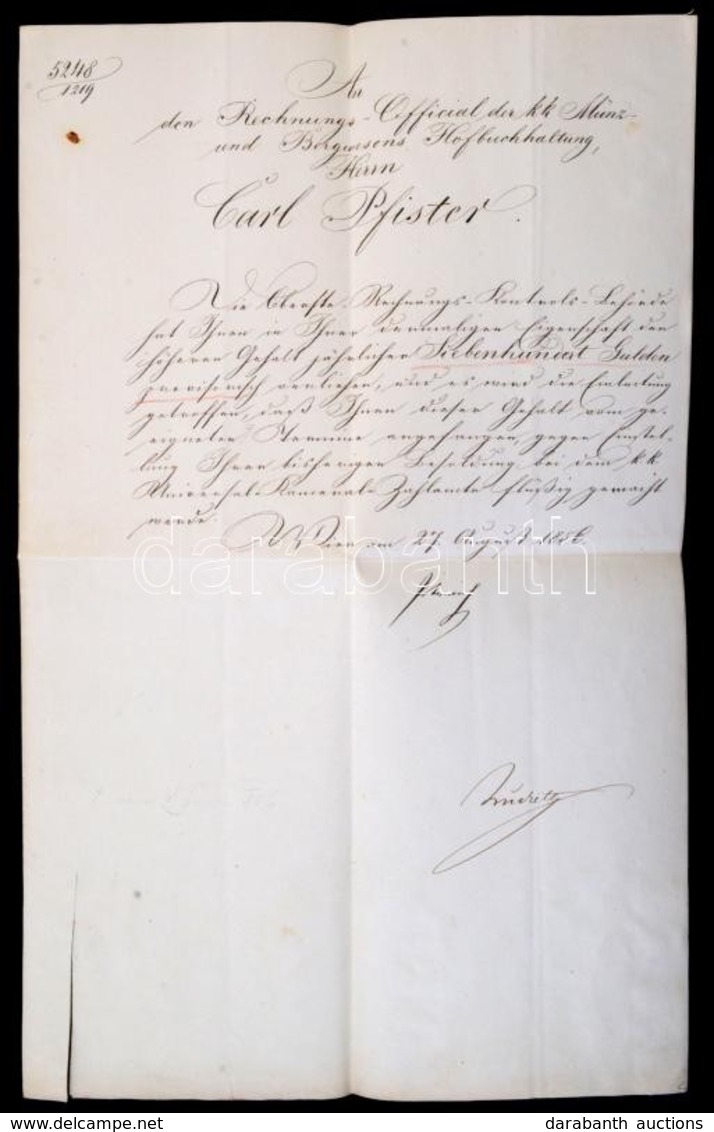 5248
1219
An
den Rechnungs-Official der kk Münz-
und Bergwesens Hofbuchhaltung,
Herrn
Carl Pfister.
Die Oberste Rechnungs-Kontrols-Behörde
hat Ihnen in Ihrer dermaligen Eigenschaft den
höheren Gehalt jährlicher Siebenhundert Gulden
provisorisch verliehen, und es wird die Einleitung
getroffen, daß Ihnen dieser Gehalt vom ge-
eigneten Termine angefangen, gegen Einstel-
lung Ihrer bisherigen Besoldung bei dem k.k.
Universal-Kameral-Zahlamte flüßig gemacht
werde.
Wien am 27. August 1856.
darabanth
DELCAMPE.NET
darabanth auctions